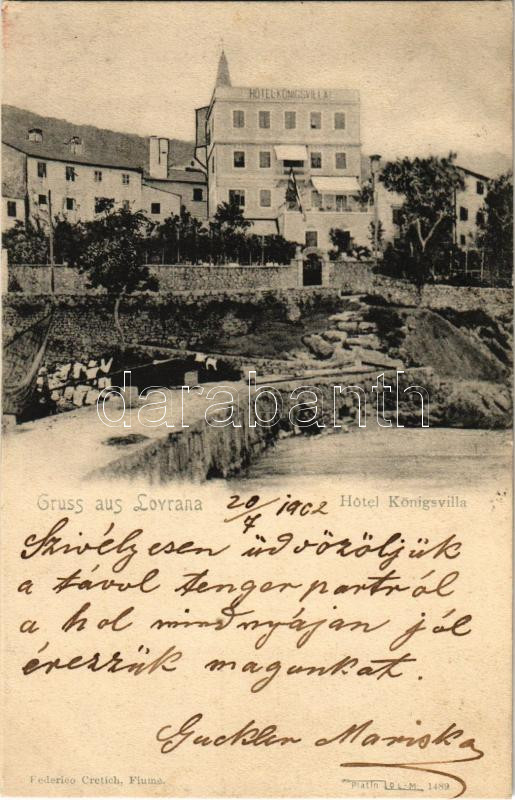 HÔTEL KÖNIGSVILLA
darabanth.com
Gruss aus Lovrana
20/7 1902
Hôtel Königsvilla
Szivélyesen üdvözöljük
a távol tenger partról
a hol mindnyájan jól
érezzük magunkat.
Guckler Mariska
Federico Cretich, Fiume.
Platin D L.-M. 1489